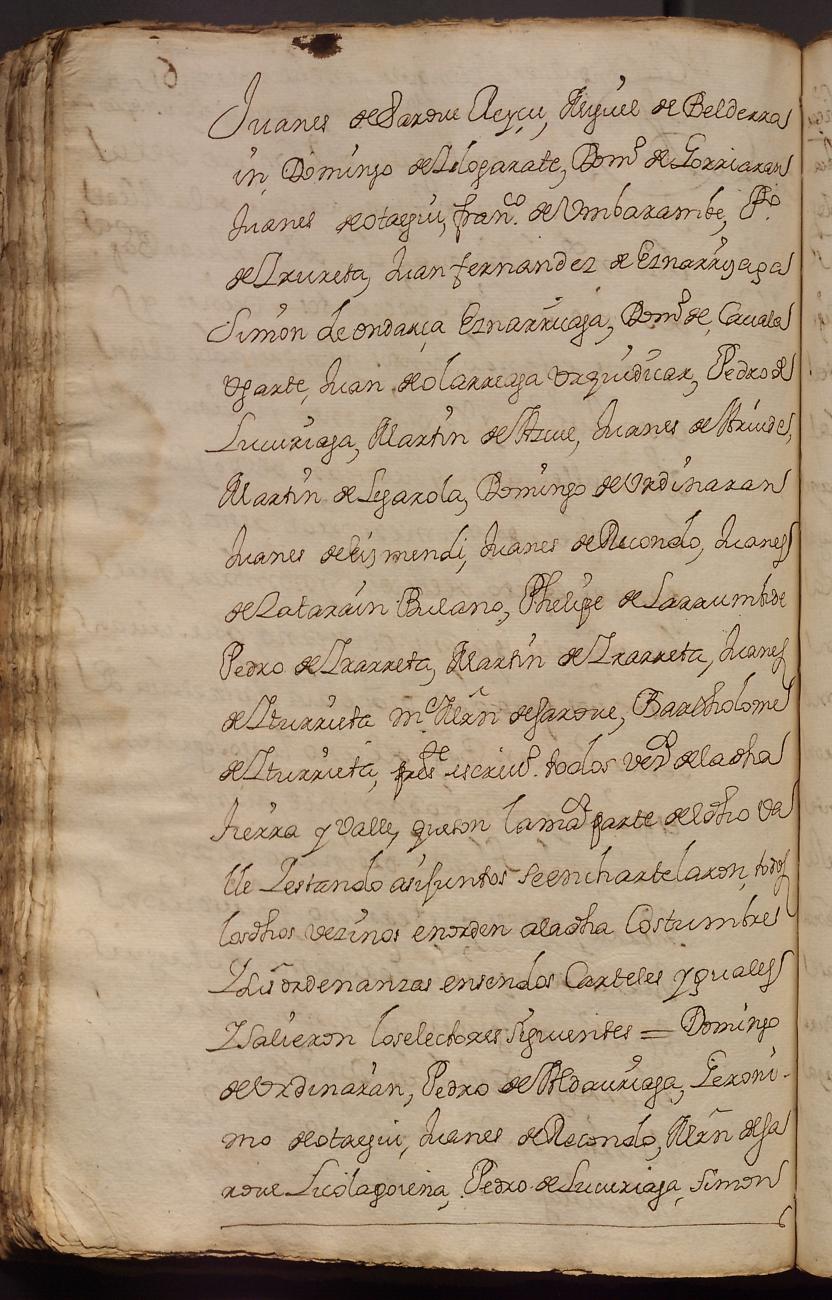 Juanes de Sarove Aeycu, Miguel de Belderra
in Domingo de Ydogarate, Dom.º de Gorriaran
Juanes de otaegui, fran.co de Umbarambe, P.º
de Irureta, Juan fernandez de Eznarriçaga
Simon de ondarça Eznarriçaga, Dom.º de, Çavala
Ugarte, Juan de olarreaga urquidicar, Pedro de
Lucuriaga, Martin de Azcue, Juanes de
Martin de Legarola, Domingo de Urdinaran
Juanes de Eismendi, Juanes de Recondo, Juanes
de Zatarain Bulano, Phelipe de Larrumbide
Pedro de Irarreta, Martin de Irarreta, Juanes
de Yturrieta Mrñ de sarove, Bartholome
de Yturrieta, press.te escriv.º todos vez.os de la dha
tierra y Valle, que son la ma.or parte del dho Va
lle Y estando asi juntos se enchartelaron, todos
los dhos vezinos en orden a la dha Costumbre
Y dis ordenanzas en sendos Carteles yguales
Y salieron los electores siguientes = Domingo
de Urdinaran, Pedro de Aldauriaga, Geroni-
mo de otaegui, Juanes de Recondo, Mrñ de Sa
rove Licolagoiena, Pedro de Lucuriaga, simon